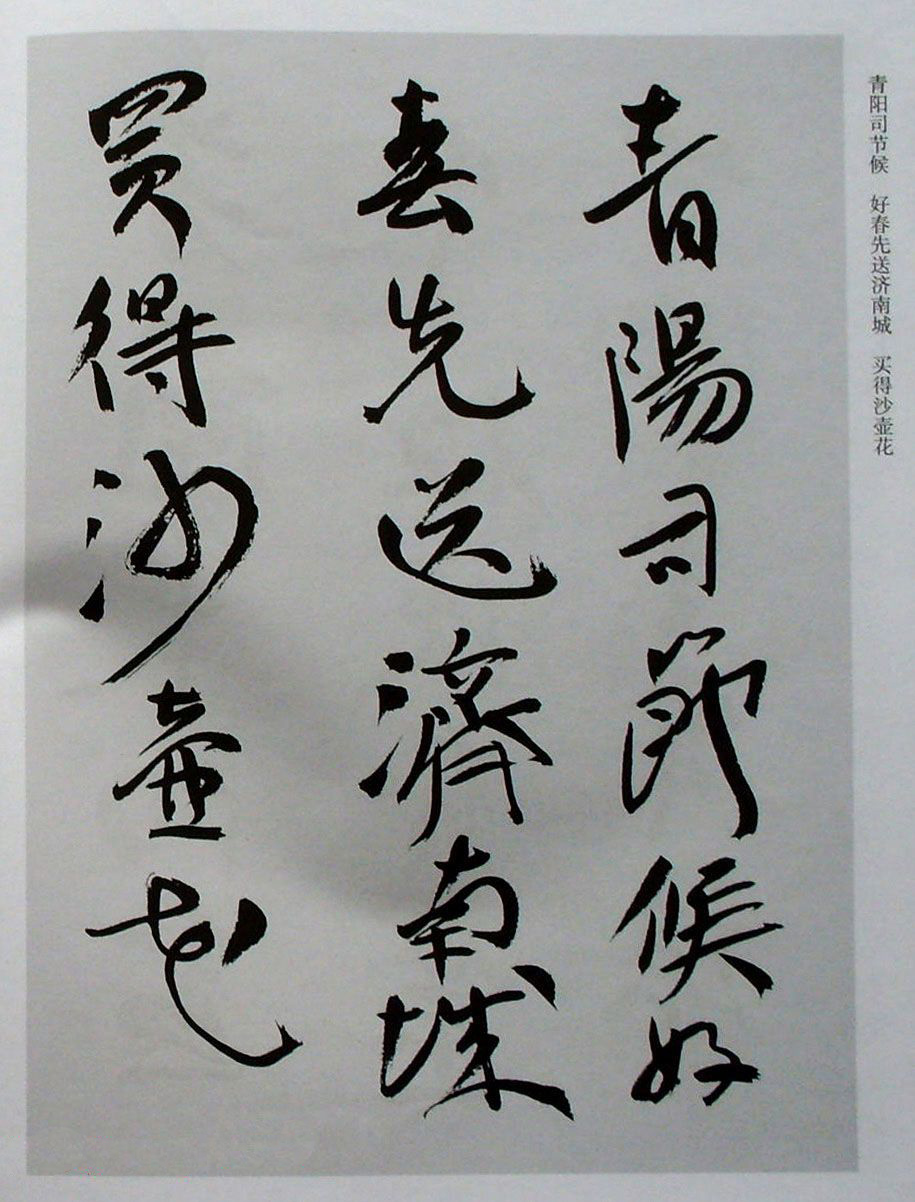 青阳司节候　好春先送济南城　买得沙壶花
青陽司節候好
春先送濟南城
買得沙壺花